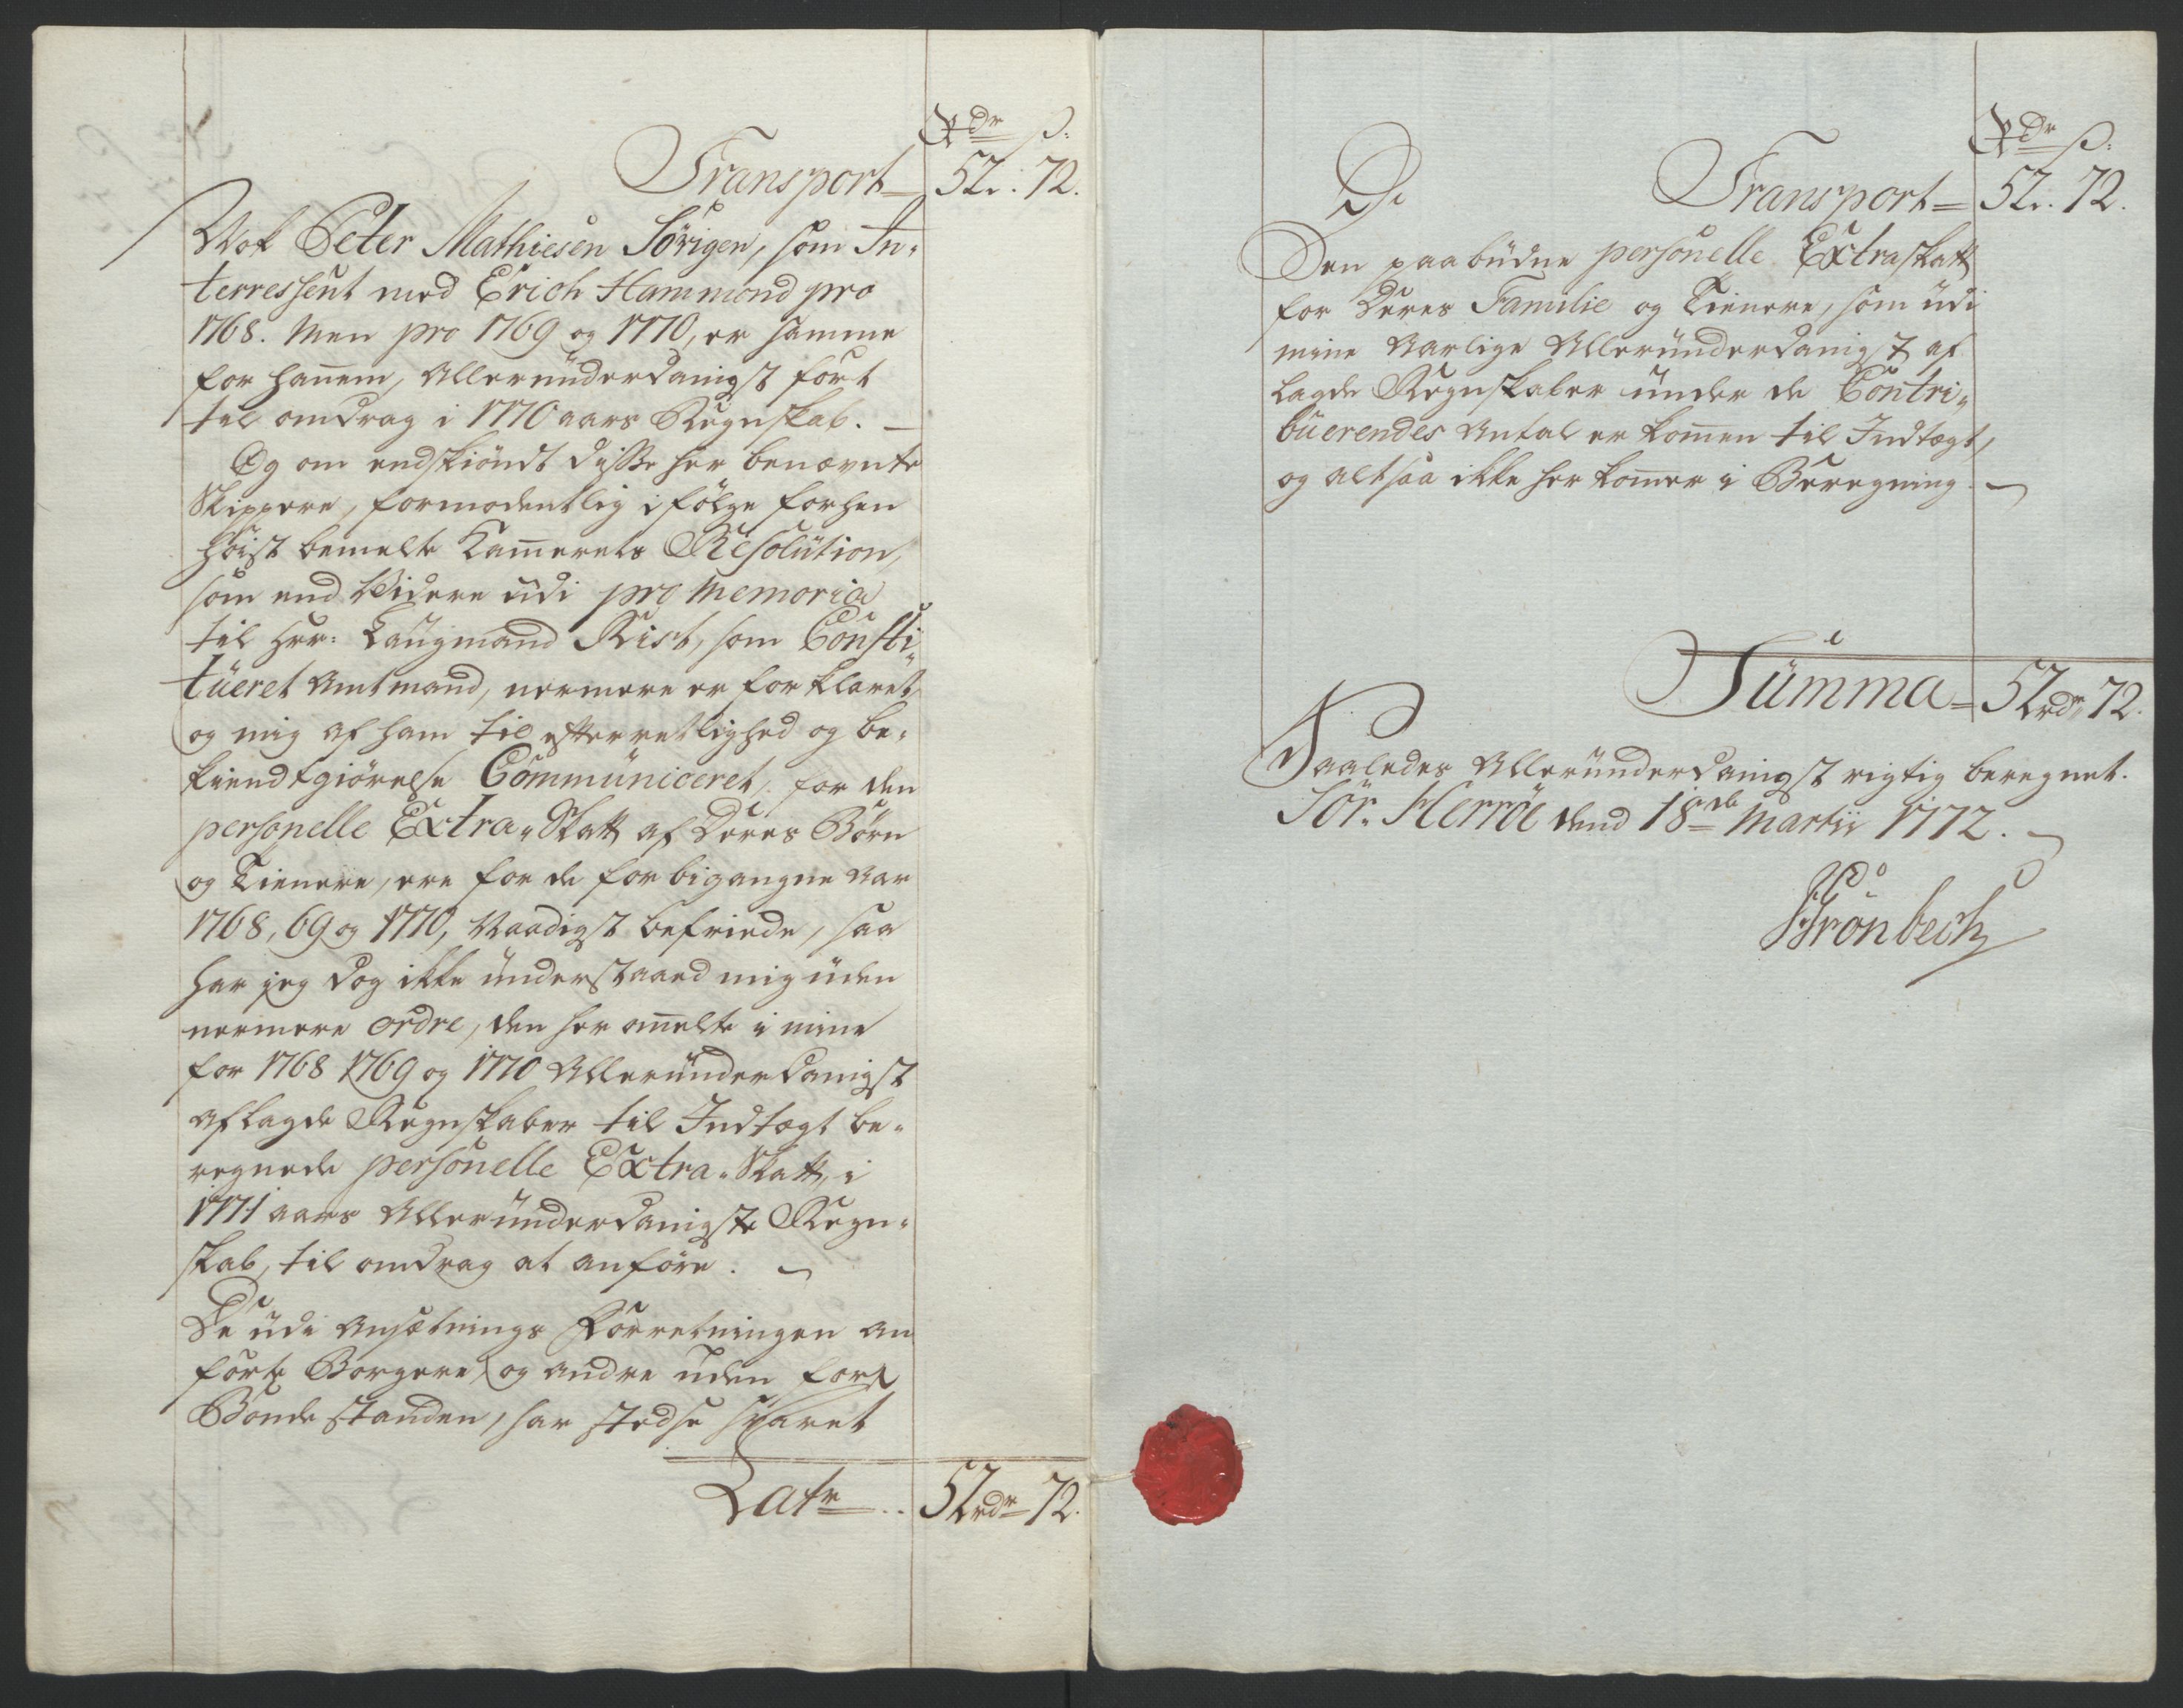 Rdr ß:
Transport 52: 72.
Peter Mathiesen Sörigen, som In-
terressent med Erich Hammond pro
1768. Men pro 1769 og 1770, er samme
for hanem, Alleründerdanigst fört
til omdrag i 1770 aars Regnskab.
Og om endskiöndt disse her benævnte
Skippere, formodentlig ifölge forhen
höist bemelte Kamerets Resolütion,
som end Videre üdi pro Memoria
til Hrr: Laügmand Rist, som Consti-
tüeret Amtmand, nermere er forklaret,
og mig af ham til efterretlighed og be-
kiendtgiörelse Commüniceret, for den
personelle Extra-Skatt af Deres Börn
og Tienere, ere for de forbigangne Aar
1768, 69 og 1770, Naadigst befriede, saa
har jeg dog ikke ünderstaaed mig üden
nermere ordre, den her omelte i mine
for 1768 1769 og 1770 Alleründerdanigst
aflagde Regnskaber til Indtægt be-
regnede personelle Extra-Skatt, i
1771 aars Alleründerdanigste Regn-
skab, til omdrag at anföre.
De üdi Ansætnings Forretningen an
förte Borgere, og andre uden for
Bonde standen, har stedse svaret
Latr 52 rdr 72.
Rdr ß:
Transport 52: 72.
Den paabüdne personelle Extraskatt
for Deres Familie og Tienere, som üdi
mine Aarlige Alleründerdanigst af
lagde Regnskaber ünder de Contri-
büerendes Antal er komen til Indtægt,
og altsaa ikke her komer i Beregning.
Sümma 52 rdr 72.
Saaledes Alleründerdanigst rigtig beregnet.
Sör-Herröe dend 18de Martii 1772.
Grönbech